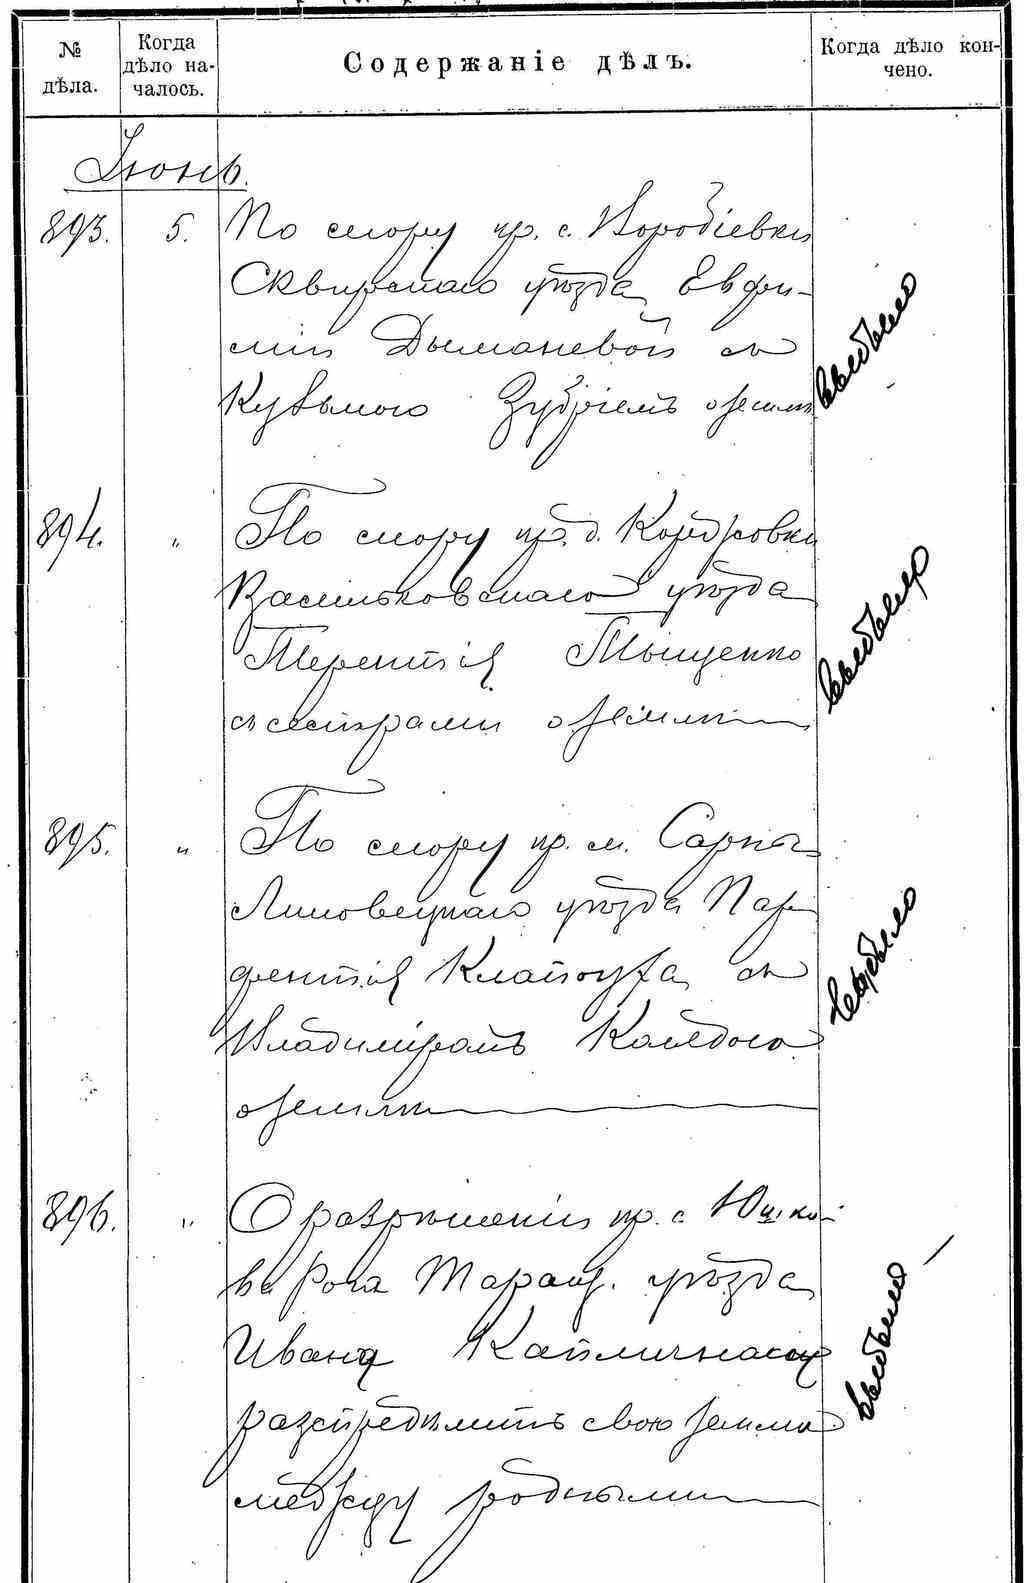 № дѣла.
Когда дѣло на-
чалось.
Содержаніе дѣлъ.
Когда дѣло кон-
чено.
Іюнь.
893. 5. По спору кр. с. Воробіевки
Сквирскаго уѣзда Евфи-
міи Дыманевой съ
Кузьмою Зубріемъ о землѣ
выбыло
894. " По спору кр. д.
Васильковскаго уѣзда
Терентія Тыщенко
съ сестрами о землѣ
выбыло
895. " По спору кр. м. Сарны
Липовецкаго уѣзда Пар-
фентія Клапоуха съ
Владиміромъ
о землѣ
выбыло
896. " О разрѣшеніи кр. с. Юшков-
ва Рога Таращ. уѣзда
Ивана
распредѣлить свою землю
между родными
выбыло